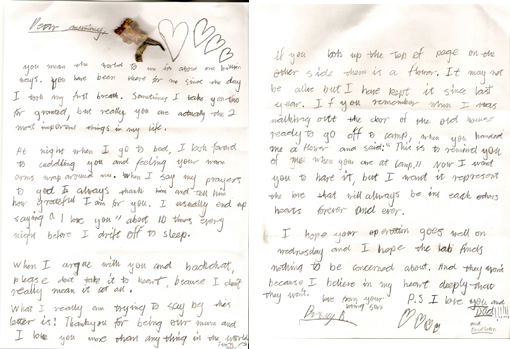 Dear mummy,
you mean the world to me in about one billion
ways. you have been there for me since the day
I took my first breath. Sometimes I take you two
for granted, but really you are actually the 2
most imporous things in my life.
At night when I go to bed, I look forward
to cuddling you and feeling your warm
arms wrap around me. When I say my prayers
to god I always thank him and tell him
how grateful I am for you. I usually end up
saying "I love you" about 10 times every
night before I drift off to sleep.
When I argue with you and backchat,
please dont take it to heart, because I don't
really mean it at all.
What I really am trying to say by this
letter is! Thankyou for being our mum and
I love you more than any thing in the world
if you look up the top of page on the
other side there is a flower. It may not
be alive but I have kept it since last
year. If you remember when I was
walking out the door of the old house
ready to go off to camp, when you handed
me a flower and said: "This is to remind you
of me when you are at camp." Now I want
you to have it, but I want it represent
the love that will always be in each others
hearts forever and ever.
I hope your operation goes well on
wednesday and I hope the lab finds
nothing to be concerned about. And they wont
because I believe in my heart deeply that
they wont.
love from your
loving son
P.S I love you and
Dad!!!!!